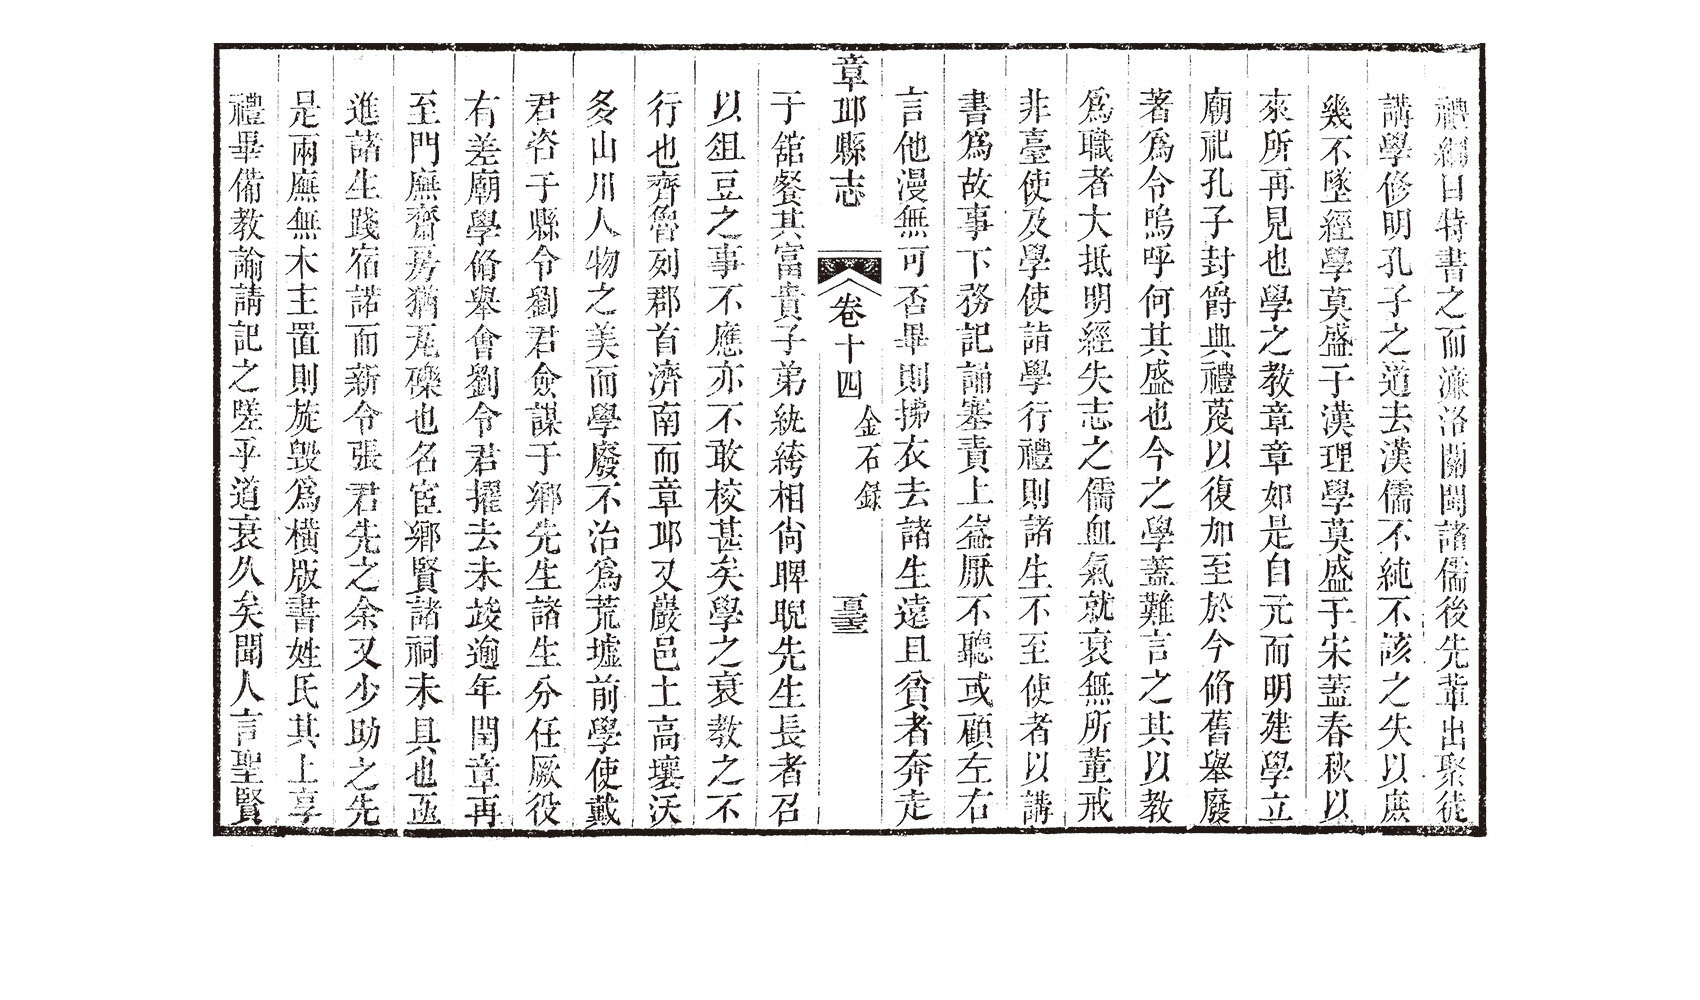 禮綱目特書之而濂洛關閩諸儒後先輩出聚徒
講學修明孔子之道去漢儒不純不該之失以庶
幾不墜經學莫盛于漢理學莫盛于宋蓋春秋以
來所再見也學之教章章如是自元而明建學立
廟祀孔子封爵典禮蔑以復加至於今脩舊舉廢
著爲令嗚呼何其盛也今之學蓋難言之其以教
爲職者大抵明經失志之儒血氣就衰無所董戒
非臺使及學使詣學行禮則諸生不至使者以講
書爲故事下務記誦塞責上益厭不聽或顧左右
言他漫無可否畢則拂衣去諸生遠且貧者奔走
章邱縣志
卷十四
金石錄
于舘餐其富貴子弟紈絝相尙睥睨先生長者召
以俎豆之事不應亦不敢校甚矣學之衰教之不
行也齊魯列郡首濟南而章邱又巖邑土高壤沃
多山川人物之美而學廢不治爲荒墟前學使戴
君咨于縣令劉君僉謀于鄉先生諸生分任厥役
有差廟學脩舉會劉令君擢去未竣逾年閏章再
至門廡齋房猶瓦礫也名宦鄉賢諸祠未具也亟
進諸生踐宿諾而新令張君先之余又少助之先
是兩廡無木主置則旋毀爲橫版書姓氏其上享
禮畢備教諭請記之嗟乎道衰久矣聞人言聖賢